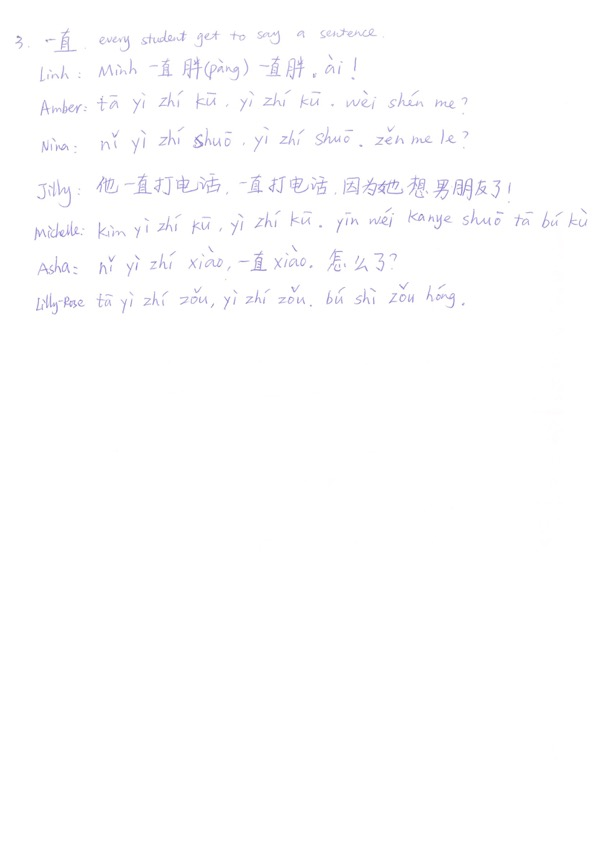 3. 一直. every student get to say a sentence.
Linh: Mình 一直胖(pàng) 一直胖。ài!
Amber: tā yì zhí kū, yì zhí kū. wèi shén me?
Nina: nǐ yì zhí shuō, yì zhí shuō. zěn me le?
Jilly: 他一直打电话,一直打电话,因为她想男朋友了!
Michelle: kim yì zhí kū, yì zhí kū. yīn wéi kanye shuō tā bú kù
Asha: nǐ yì zhí xiào, 一直xiào. 怎么了?
Lilly-Rose tā yì zhí zǒu, yì zhí zǒu. bú shì zǒu hóng.